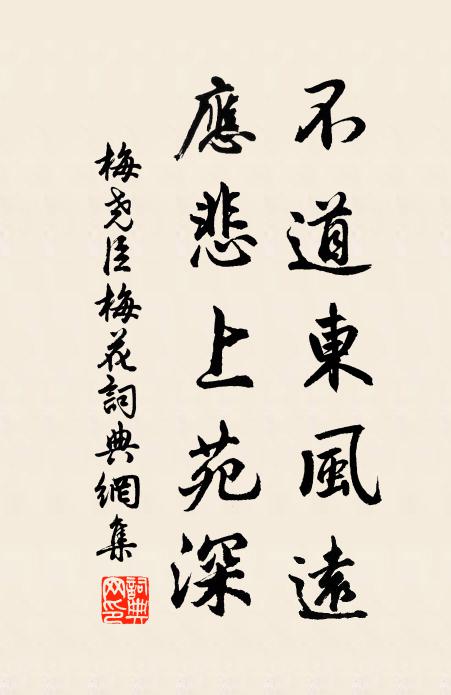 不道東風遠
應悲上苑深
梅堯臣梅花詞典網集
詞典网印